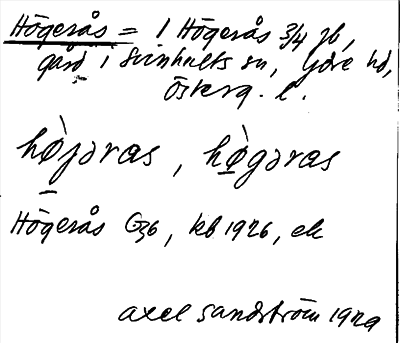 Högerås = 1 Högerås 3/4 jb,
gård i Svinhults sn, Ydre hd,
Österg. l.
hø̀jəras, hø̀gəras
Högerås G36, kb 1926, ek
Axel Sandström 1929